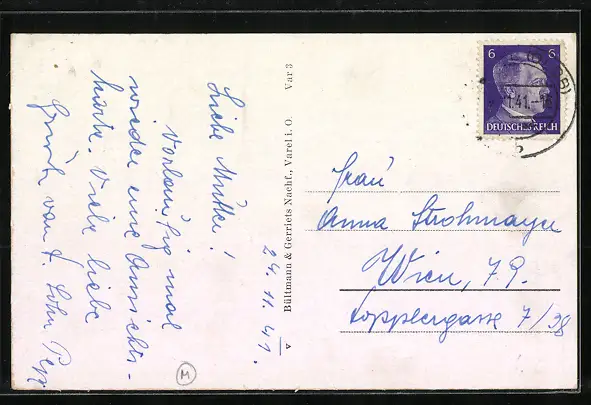 Liebe Mutter!
Vorläufig mal
wieder eine Ansichts-
karte. Viele liebe
van
24. 11. 41.
Bültmann & Gerriets Nachf., Varel i. O. Var 3
6 6
DEUTSCHES REICH
41.-
Frau
Anna Strohmayer
Wien, 79.
Kopplergasse 7/38
M